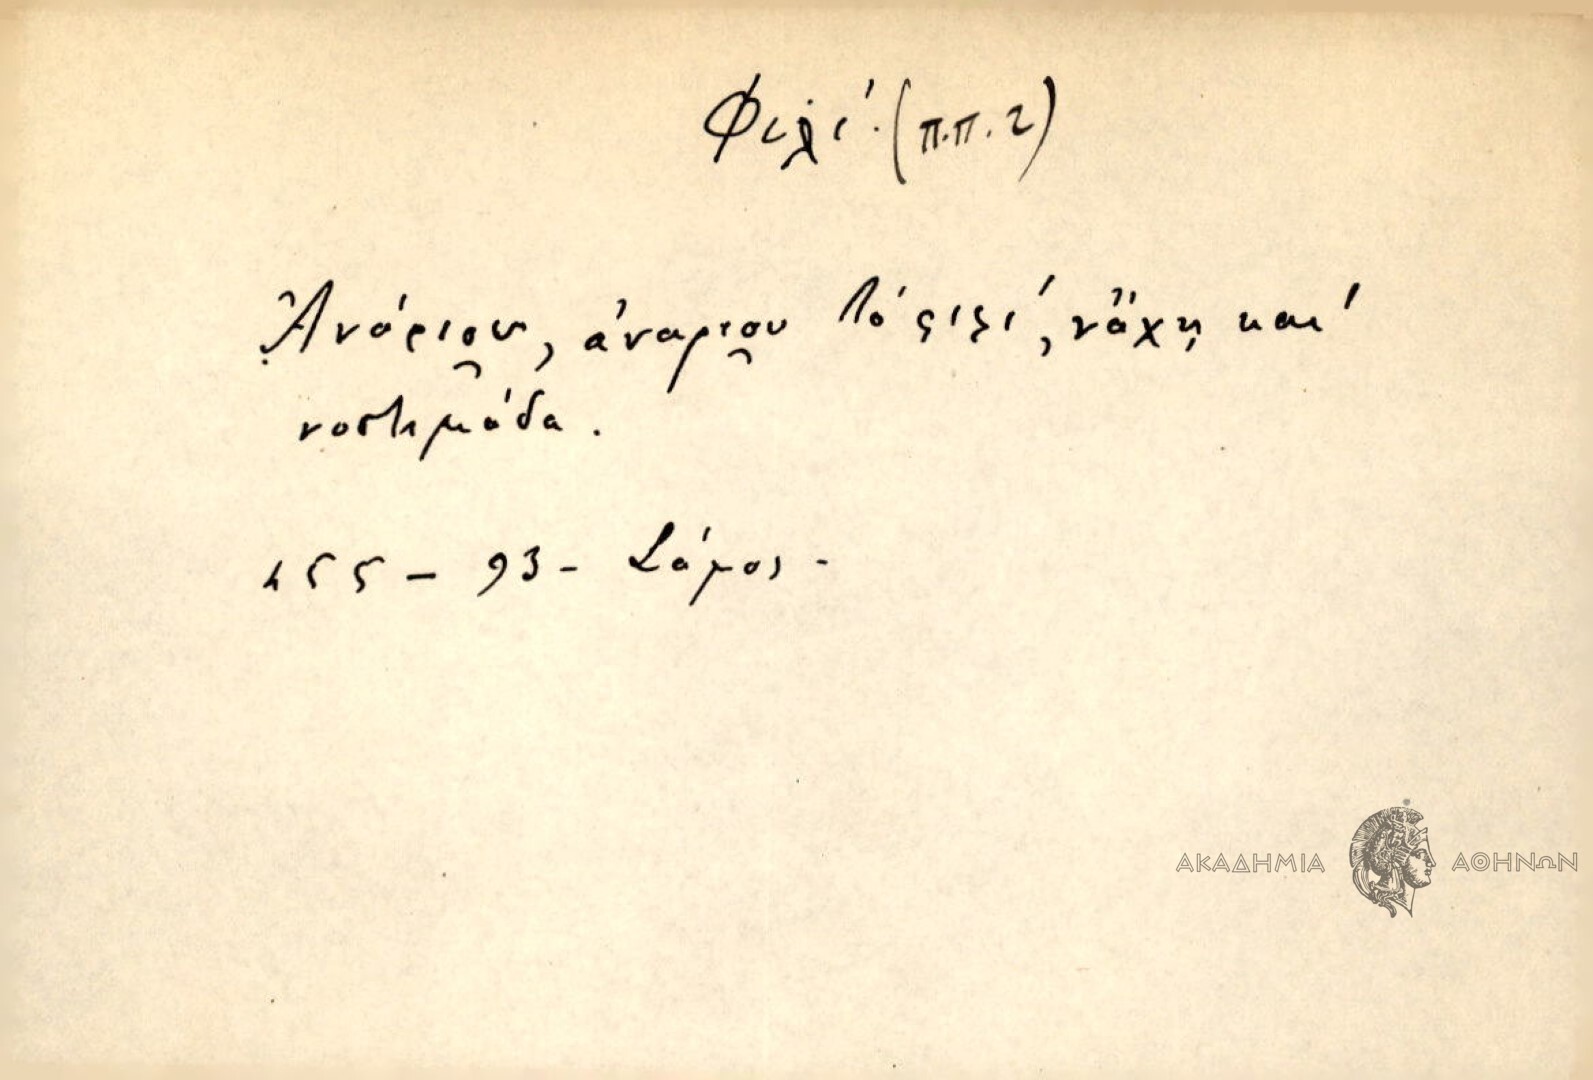 Φιλί (π.π. 2)
Ἀνάριου, ἀναριου τό φιλί, νἄχῃ καί
νοστιμάδα.
255 – 93 – Σάμος –
ΑΚΑΔΗΜΙΑ ΑΘΗΝΩΝ